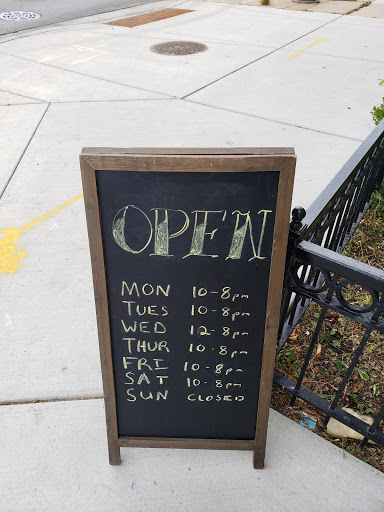 OPEN
MON 10-8pm
TUES 10-8pm
WED 12-8pm
THUR 10-8pm
FRI 10-8pm
SAT 10-8pm
SUN CLOSED